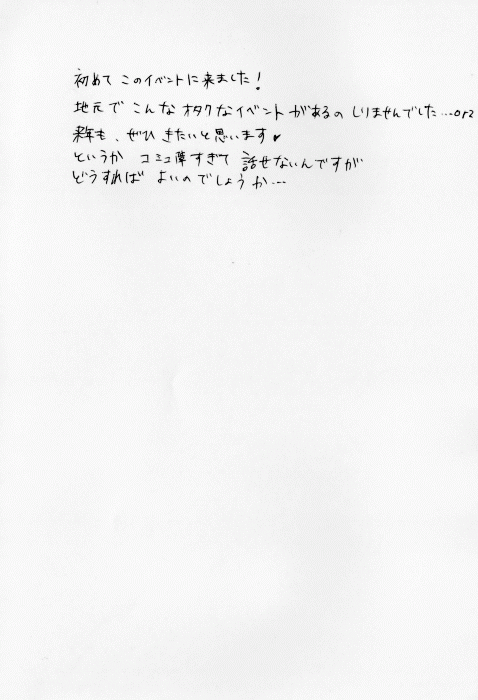 初めて このイベントに来ました!
地元で こんな オタクなイベント があるの しりませんでした…orz
来年も、ぜひ きたいと思います♥
というか コミュ障すぎて 話せないんですが
どうすれば よいの でしょうか…